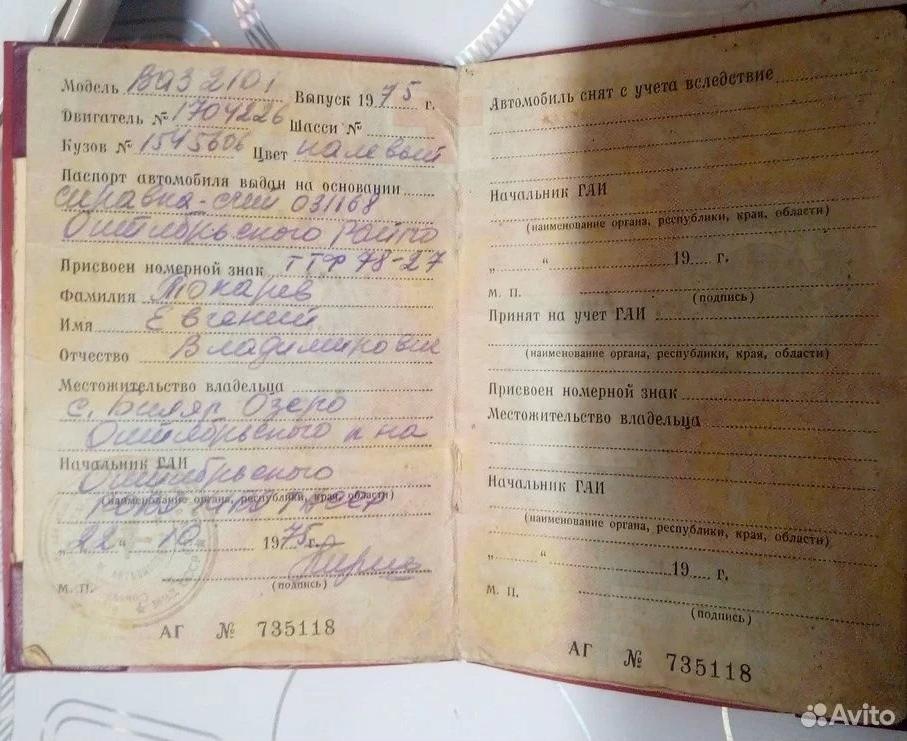 Модель ВАЗ 2101 Выпуск 1975 г.
Двигатель № 1704226 Шасси №
Кузов № 1545606 Цвет палевый
Паспорт автомобиля выдан на основании
справка-счет 031168
Октябрьского Райпо
Присвоен номерной знак ТТФ 78-27
Фамилия Токарев
Имя Евгений
Отчество Владимирович
Местожительство владельца
с. Биляр Озеро
Октябрьского р на
Начальник ГАИ
Октябрьского
(наименование органа, республики, края, области)
„22“ 10 1975 г.
М. П. (подпись)
АГ № 735118
Автомобиль снят с учета вследствие
Начальник ГАИ
(наименование органа, республики, края, области)
„ “ 19 г.
М. П. (подпись)
Принят на учет ГАИ
(наименование органа, республики, края, области)
Присвоен номерной знак
Местожительство владельца
Начальник ГАИ
(наименование органа, республики, края, области)
„ “ 19 г.
М. П. (подпись)
АГ № 735118
Avito